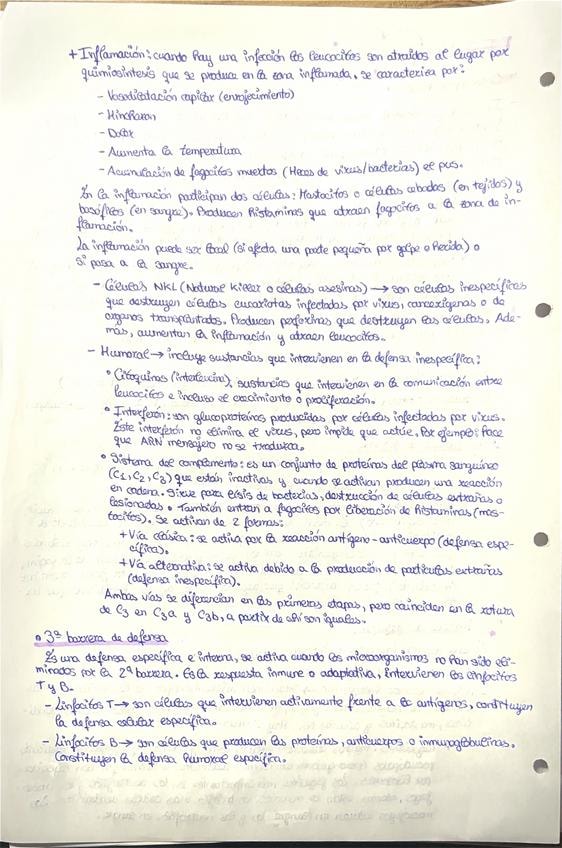 + Inflamación: cuando hay una infección los leucocitos son atraídos al lugar por
quimiosíntesis que se produce en la zona inflamada, se caracteriza por:
- Vasodilatación capilar (enrojecimiento)
- Hinchazon
- Dolor
- Aumenta la temperatura
- Acumulación de fagocitos muertos (llenos de virus/bacterias) el pus.
En la inflamación participan dos células: Mastocitos o células cebadas (en tejidos) y
basófilos (en sangre). Producen histaminas que atraen fagocitos a la zona de in-
flamación.
La inflamación puede ser local (si afecta una parte pequeña por golpe o herida) o
si pasa a la sangre.
- Células NKL (Natural Killer o células asesinas) → son células inespecíficas
que destruyen células eucariotas infectadas por virus, cancerígenas o de
organos transplantados. Producen perforinas que destruyen las células. Ade-
más, aumentan la inflamación y atraen leucocitos.
- Humoral → incluye sustancias que intervienen en la defensa inespecífica:
• Citoquinas (interleucina), sustancias que intervienen en la comunicación entre
leucocitos e incluso el crecimiento o proliferación.
• Interferón: son glucoproteínas producidas por células infectadas por virus.
Este interferón no elimina el virus, pero impide que actúe. Por ejemplo: hace
que ARN mensajero no se traduzca.
• Sistema del complemento: es un conjunto de proteínas del plasma sanguíneo
(C1, C2, C3) que están inactivas y cuando se activan producen una reacción
en cadena. Sirve para lisis de bacterias, destrucción de células extrañas o
lesionadas. También entran a fagocitos por liberación de histaminas (mas-
tocitos). Se activan de 2 formas:
+ Vía clásica: se activa por la reacción antígeno-anticuerpo (defensa espe-
cífica).
+ Vía alternativa: se activa debido a la producción de partículas extrañas
(defensa inespecífica).
Ambas vías se diferencian en las primeras etapas, pero coinciden en la rotura
de C3 en C3a y C3b, a partir de ahí son iguales.
• 3ª barrera de defensa
Es una defensa específica e interna, se activa cuando los microorganismos no han sido eli-
minados por la 2ª barrera. Es la respuesta inmune o adaptativa, intervienen los linfocitos
T y B.
- Linfocitos T → son células que intervienen activamente frente a los antígenos, constituyen
la defensa celular específica.
- Linfocitos B → son células que producen las proteínas, anticuerpos o inmunoglobulinas.
Constituyen la defensa humoral específica.